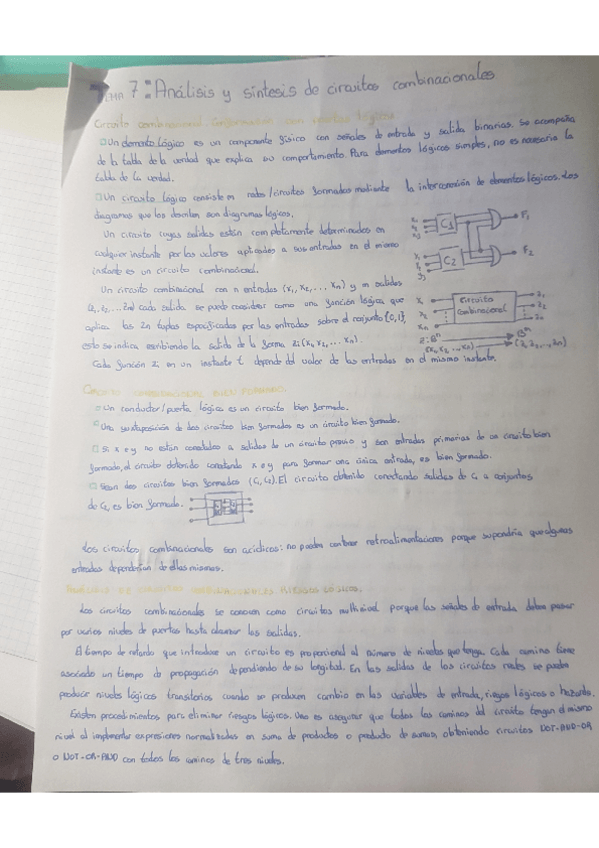 TEMA 7: Análisis y síntesis de circuitos combinacionales
Circuito combinacional.
Un elemento lógico es un componente físico con señales de entrada y salida binarias. Se acompaña
de la tabla de la verdad que explica su comportamiento. Para elementos lógicos simples, no es necesario la
tabla de la verdad.
Un circuito lógico consiste en redes/circuitos formados mediante la interconexión de elementos lógicos. Los
diagramas que los describen son diagramas lógicos.
Un circuito cuyas salidas están completamente determinadas en
cualquier instante por los valores aplicados a sus entradas en el mismo
instante es un circuito combinacional.
Un circuito combinacional con n entradas (x1, x2, ... xn) y m salidas
(z1, z2, ... zm) cada salida se puede considerar como una función lógica que
aplica las 2n tuplas especificadas por las entradas sobre el conjunto {0,1},
esto se indica escribiendo la salida de la forma zi (x1, x2, ... xn).
Cada función zi en un instante t depende del valor de las entradas en el mismo instante.
C1
F1
C2
F2
y3
x1
x2
xn
Circuito
Combinacional
z1
z2
zm
CIRCUITO COMBINACIONAL BIEN FORMADO.
Un conductor/puerta lógica es un circuito bien formado.
Una yuxtaposición de dos circuitos bien formados es un circuito bien formado.
Si x e y no están conectados a salidas de un circuito previo y son entradas primarias de un circuito bien
formado, el circuito obtenido conectando x e y para formar una única entrada, es bien formado.
Sean dos circuitos bien formados (C1, C2). El circuito obtenido conectando salidas de C1 a conjuntos
de C2, es bien formado.
Los circuitos combinacionales son acíclicos: no pueden contener retroalimentaciones porque supondría que algunas
entradas dependerían de ellas mismas.
ANÁLISIS DE CIRCUITOS COMBINACIONALES. RIESGOS LÓGICOS.
Los circuitos combinacionales se conocen como circuitos multinivel porque las señales de entrada deben pasar
por varios niveles de puertas hasta alcanzar las salidas.
El tiempo de retardo que introduce un circuito es proporcional al número de niveles que tenga. Cada camino tiene
asociado un tiempo de propagación dependiendo de su longitud. En las salidas de los circuitos reales se pueden
producir niveles lógicos transitorios cuando se producen cambio en las variables de entrada, riesgos lógicos o hazards.
Existen procedimientos para eliminar riesgos lógicos. Uno es asegurar que todos los caminos del circuito tengan el mismo
nivel al implementar expresiones normalizadas en suma de productos o producto de sumas, obteniendo circuitos NOT-AND-OR
o NOT-OR-AND con todos los caminos de tres niveles.